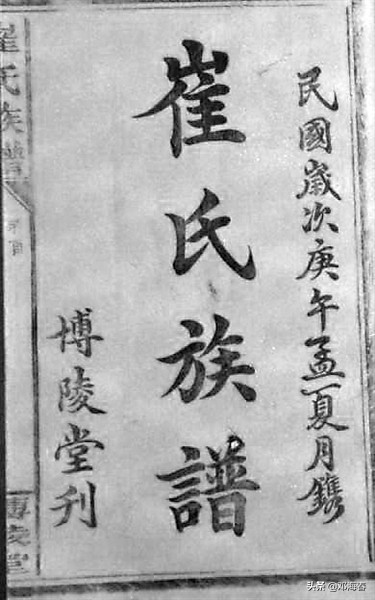 民國嵗次庚午孟夏月鐫
崔氏族譜
博陵堂刊
崔氏族譜
博陵堂
头条 @邓海春